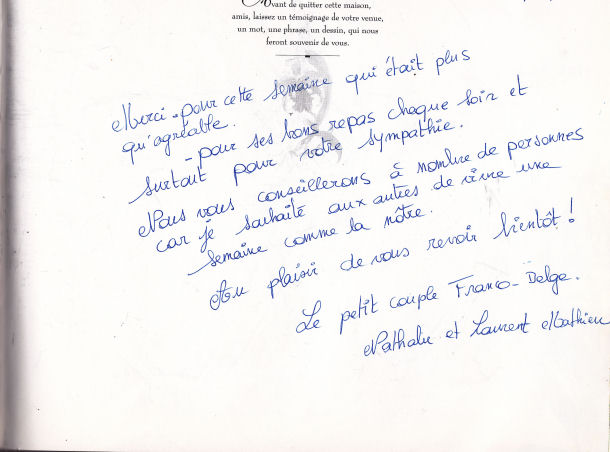 Avant de quitter cette maison,
amis, laissez un témoignage de votre venue,
un mot, une phrase, un dessin, qui nous
feront souvenir de vous.
Merci - pour cette semaine qui était plus
qu'agréable.
- pour ses bons repas chaque soir et
surtout pour votre sympathie.
Nous vous conseillerons à nombre de personnes
car je souhaite aux autres de vivre une
semaine comme la nôtre.
Au plaisir de vous revoir bientôt !
Le petit couple Franco-Belge.
Nathalie et Laurent Mathieu